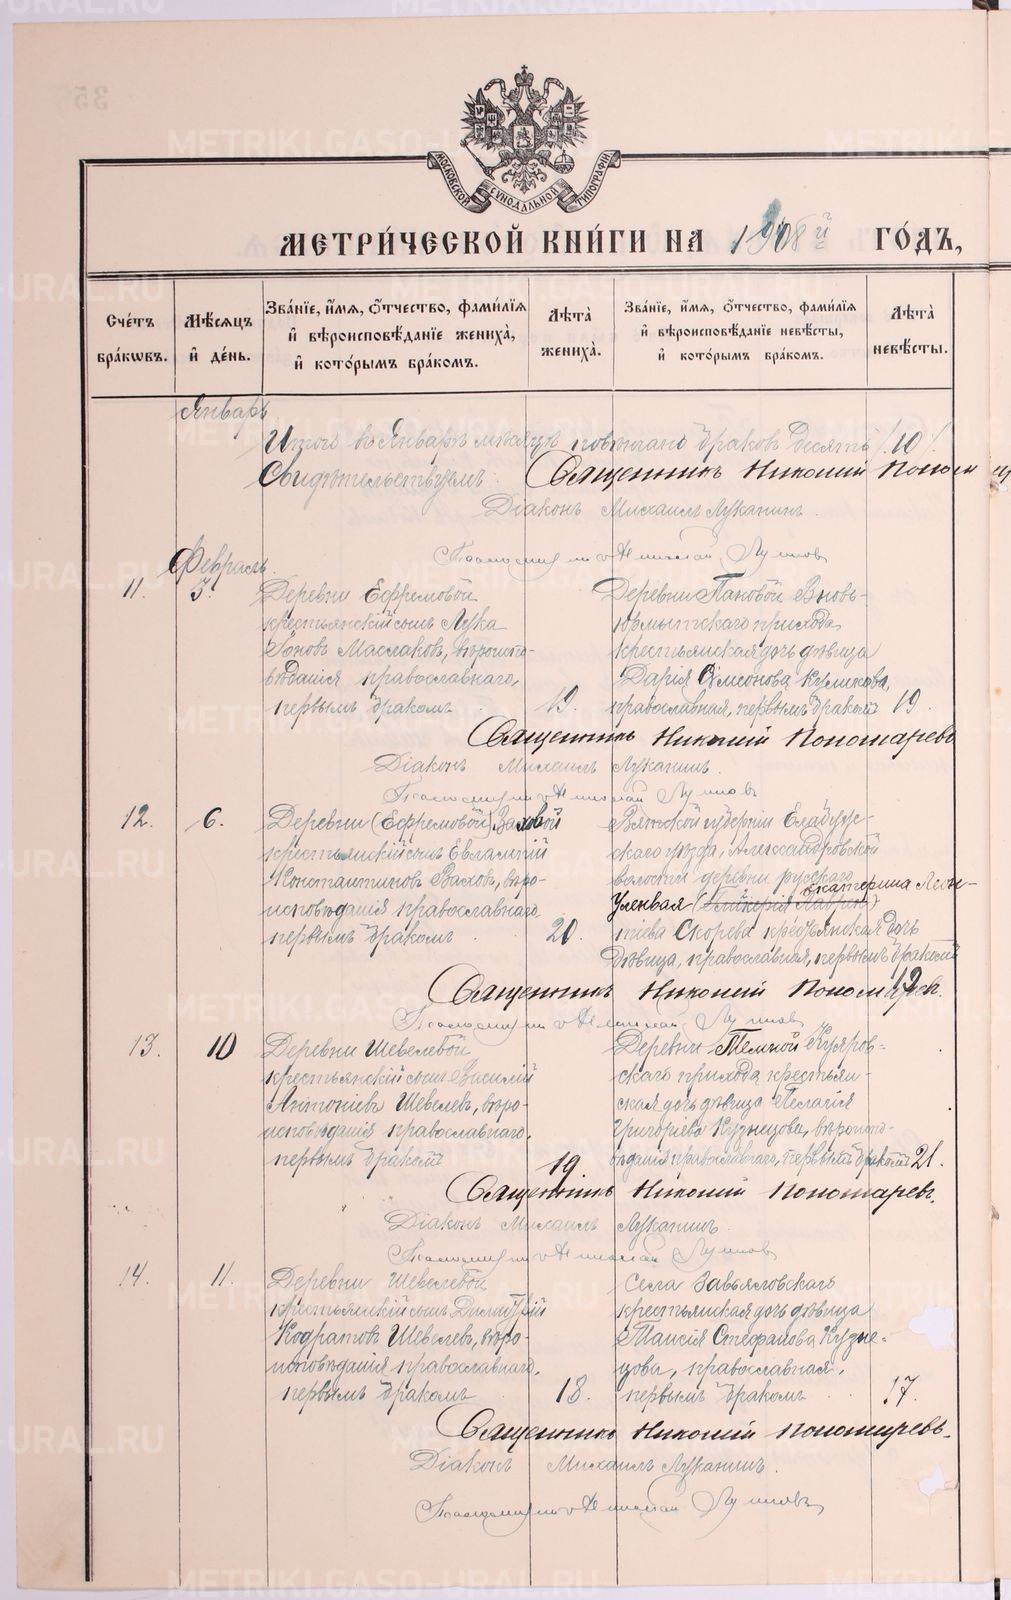 35
МОСКОВСКОЙ СѴНОДАЛЬНОЙ ТИПОГРАФІИ
МЕТРИ́ЧЕСКОЙ КНИ́ГИ НА 1908й ГО́ДЪ,
Сче́тъ бра́ковъ.
Мѣ́сяцъ и҆ де́нь.
Зва́нїе, и҆́мѧ, ѻ҆́тчество, фами́лїѧ
и҆ вѣроисповѣ́данїе жениха̀,
и҆ кото́рымъ бра́комъ.
Лѣ́та̀ жениха̀.
Зва́нїе, и҆́мѧ, ѻ҆́тчество, фами́лїѧ
и҆ вѣроисповѣ́данїе невѣ́сты,
и҆ кото́рымъ бра́комъ.
Лѣ́та̀ невѣ́сты.
Январь
Итого въ Январѣ мѣсяцѣ повѣнчано браковъ десять (10).
Свидѣтельствуемъ: Священникъ Николай
Діаконъ Михаилъ Луканинъ.
Февраль.
11.
5.
Деревни Ефремовой
крестьянскій сынъ Лука
Іоновъ Маслаковъ, вѣроиспо-
вѣданія православнаго,
первымъ бракомъ
19.
Деревни Пановой Вновь-
Юрмытскаго прихода
крестьянская дочь дѣвица
Дарія Симеонова Куликова,
православная, первымъ бракомъ
19.
Священникъ Николай Пономаревъ
Діаконъ Михаилъ Луканинъ.
12.
6.
Деревни (Ефремовой) Ваховой
крестьянскій сынъ Евлампій
Константиновъ Ваховъ, вѣро-
исповѣданія православнаго
первымъ бракомъ
20.
Вятской губерніи Елабуж-
скаго уѣзда, Александровской
волости деревни русскаго
Екатерина Леон-
тиева Скорева крестьянская дочь
дѣвица, православная, первымъ бракомъ
19.
Священникъ Николай Пономаревъ.
13.
10
Деревни Шевелевой
крестьянскій сынъ Василій
Антоніевъ Шевелевъ, вѣро-
исповѣданія православнаго,
первымъ бракомъ
19.
Деревни Темной Куяров-
скаго прихода крестьян-
ская дочь дѣвица Пелагія
Григорьева Кузнецова, вѣроиспо-
вѣданія православнаго, первымъ бракомъ
21.
Священникъ Николай Пономаревъ.
Діаконъ Михаилъ Луканинъ.
14.
11.
Деревни Шевелевой
крестьянскій сынъ Димитрій
Кодратовъ Шевелевъ, вѣро-
исповѣданія православнаго,
первымъ бракомъ
18.
Села Завьяловскаго
крестьянская дочь дѣвица
Таисія Стефанова Кузне-
цова, православная,
первымъ бракомъ
17.
Священникъ Николай Пономаревъ.
Діаконъ Михаилъ Луканинъ.
METRIKI.GASO-URAL.RU